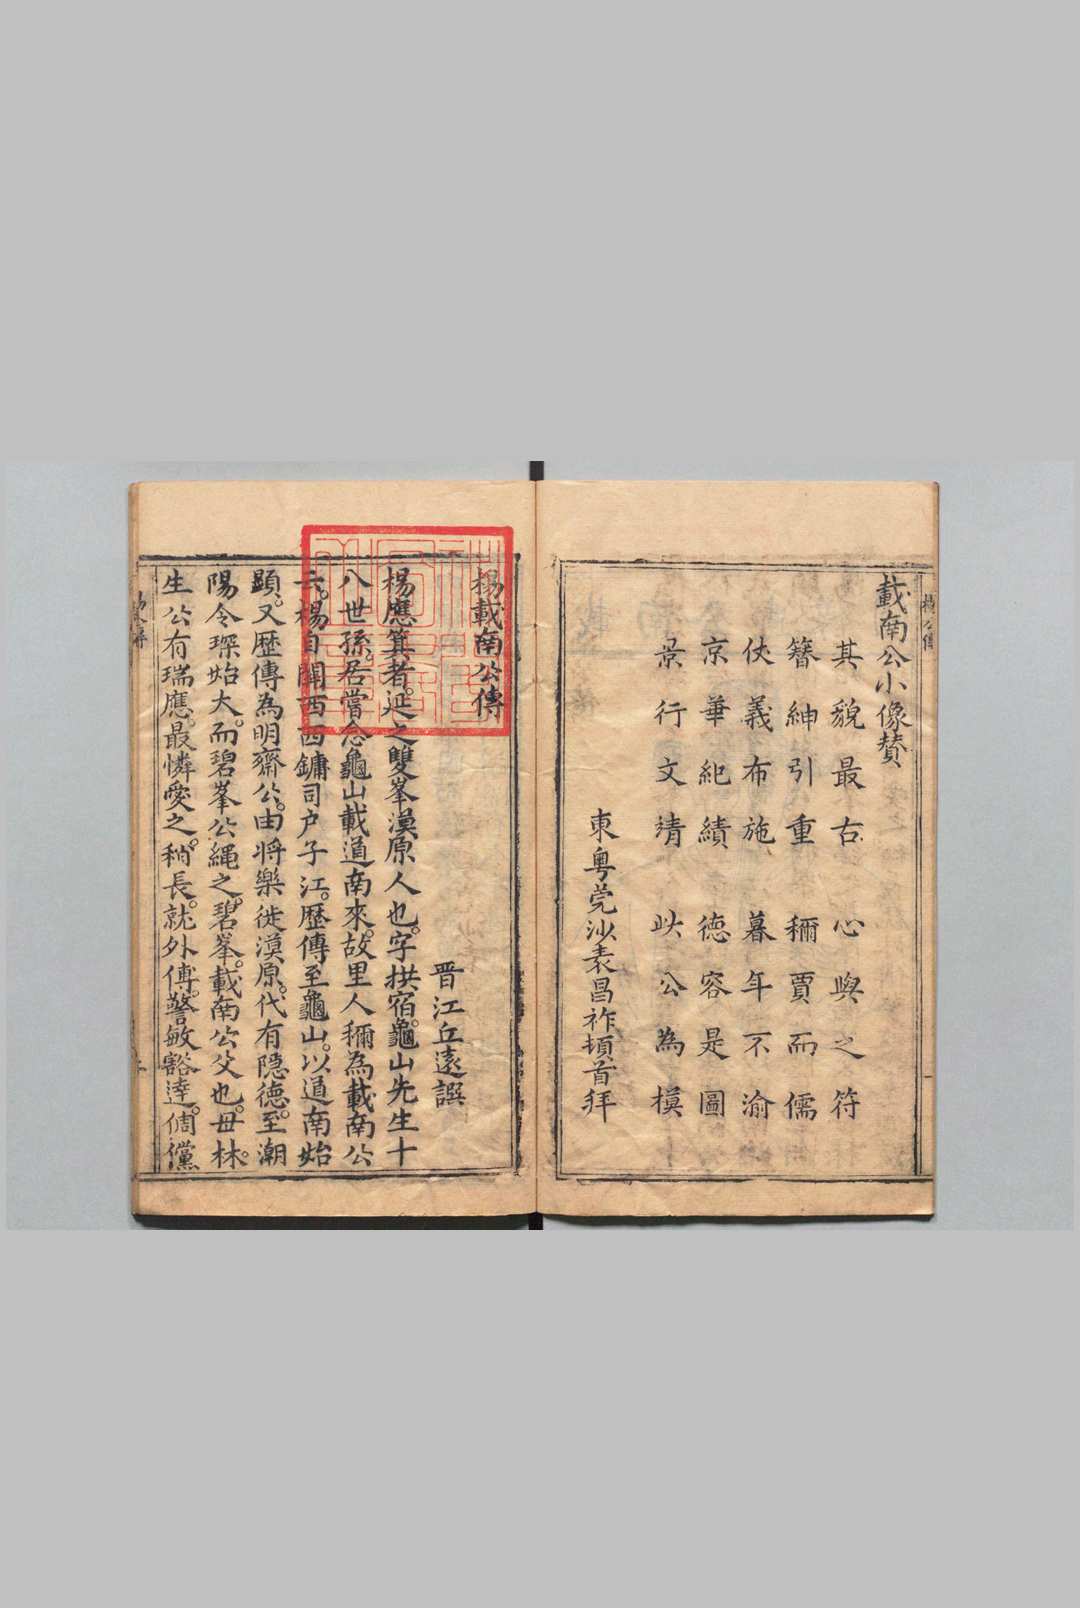 載南公小像贊
其貌最古　心與之符
簪紳引重　稱賈而儒
伏義布施　暮年不渝
京華紀績　德容是圖
景行文靖　此公為模
東粵莞沙袁昌祚頓首拜
楊載南公傳
晋江丘遠譔
楊應箕者。延之雙峯漠原人也。字拱宿。龜山先生十
八世孫。居嘗念龜山載道南來。故里人稱為載南公
云。楊自關西西鏞司户子江。歷傳至龜山。以道南始
顯。又歷傳為明齋公。由將樂徙漠原。代有隱德。至潮
陽令琛始大。而碧峯公繩之。碧峯。載南公父也。母林。
生公有瑞應。最憐愛之。稍長。就外傅。警敏豁達。倜儻